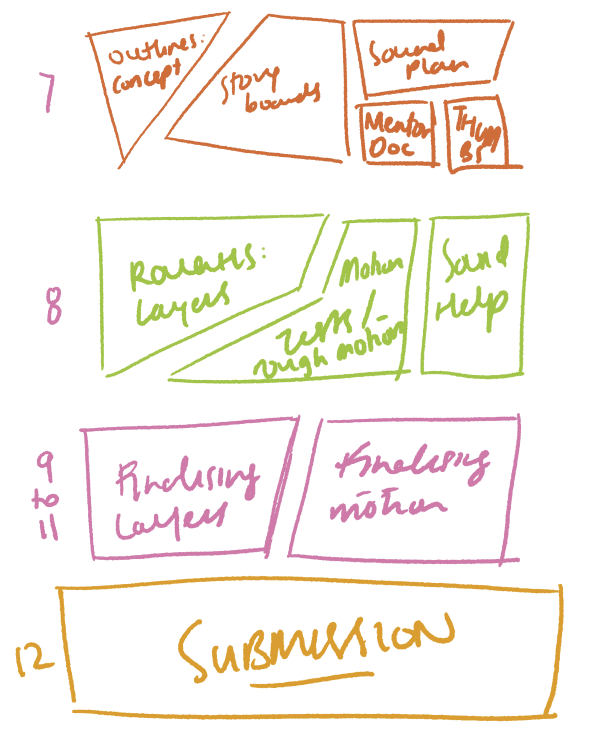 7
Outlines:
concept
Story
boards
Sound
plan
Mentor
Doc
THUM
BS
8
ROUGHS:
Layers
Motion
tests /
rough motion
Sound
Help
9
to
11
Finalising
Layers
Finalising
motion
12
SUBMISSION